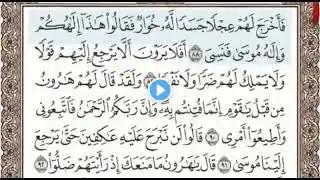 فَأَخْرَجَ لَهُمْ عِجْلًا جَسَدًا لَّهُۥ خُوَارٌ فَقَالُوا۟ هَٰذَآ إِلَٰهُكُمْ
وَإِلَٰهُ مُوسَىٰ فَنَسِىَ ٨٨ أَفَلَا يَرَوْنَ أَلَّا يَرْجِعُ إِلَيْهِمْ قَوْلًا
وَلَا يَمْلِكُ لَهُمْ ضَرًّا وَلَا نَفْعًا ٨٩ وَلَقَدْ قَالَ لَهُمْ هَٰرُونُ
مِن قَبْلُ يَٰقَوْمِ إِنَّمَا فُتِنتُم بِهِۦ وَإِنَّ رَبَّكُمُ ٱلرَّحْمَٰنُ فَٱتَّبِعُونِى
وَأَطِيعُوٓا۟ أَمْرِى ٩٠ قَالُوا۟ لَن نَّبْرَحَ عَلَيْهِ عَٰكِفِينَ حَتَّىٰ يَرْجِعَ
إِلَيْنَا مُوسَىٰ ٩١ قَالَ يَٰهَٰرُونُ مَا مَنَعَكَ إِذْ رَأَيْتَهُمْ ضَلُّوٓا۟ ٩٢